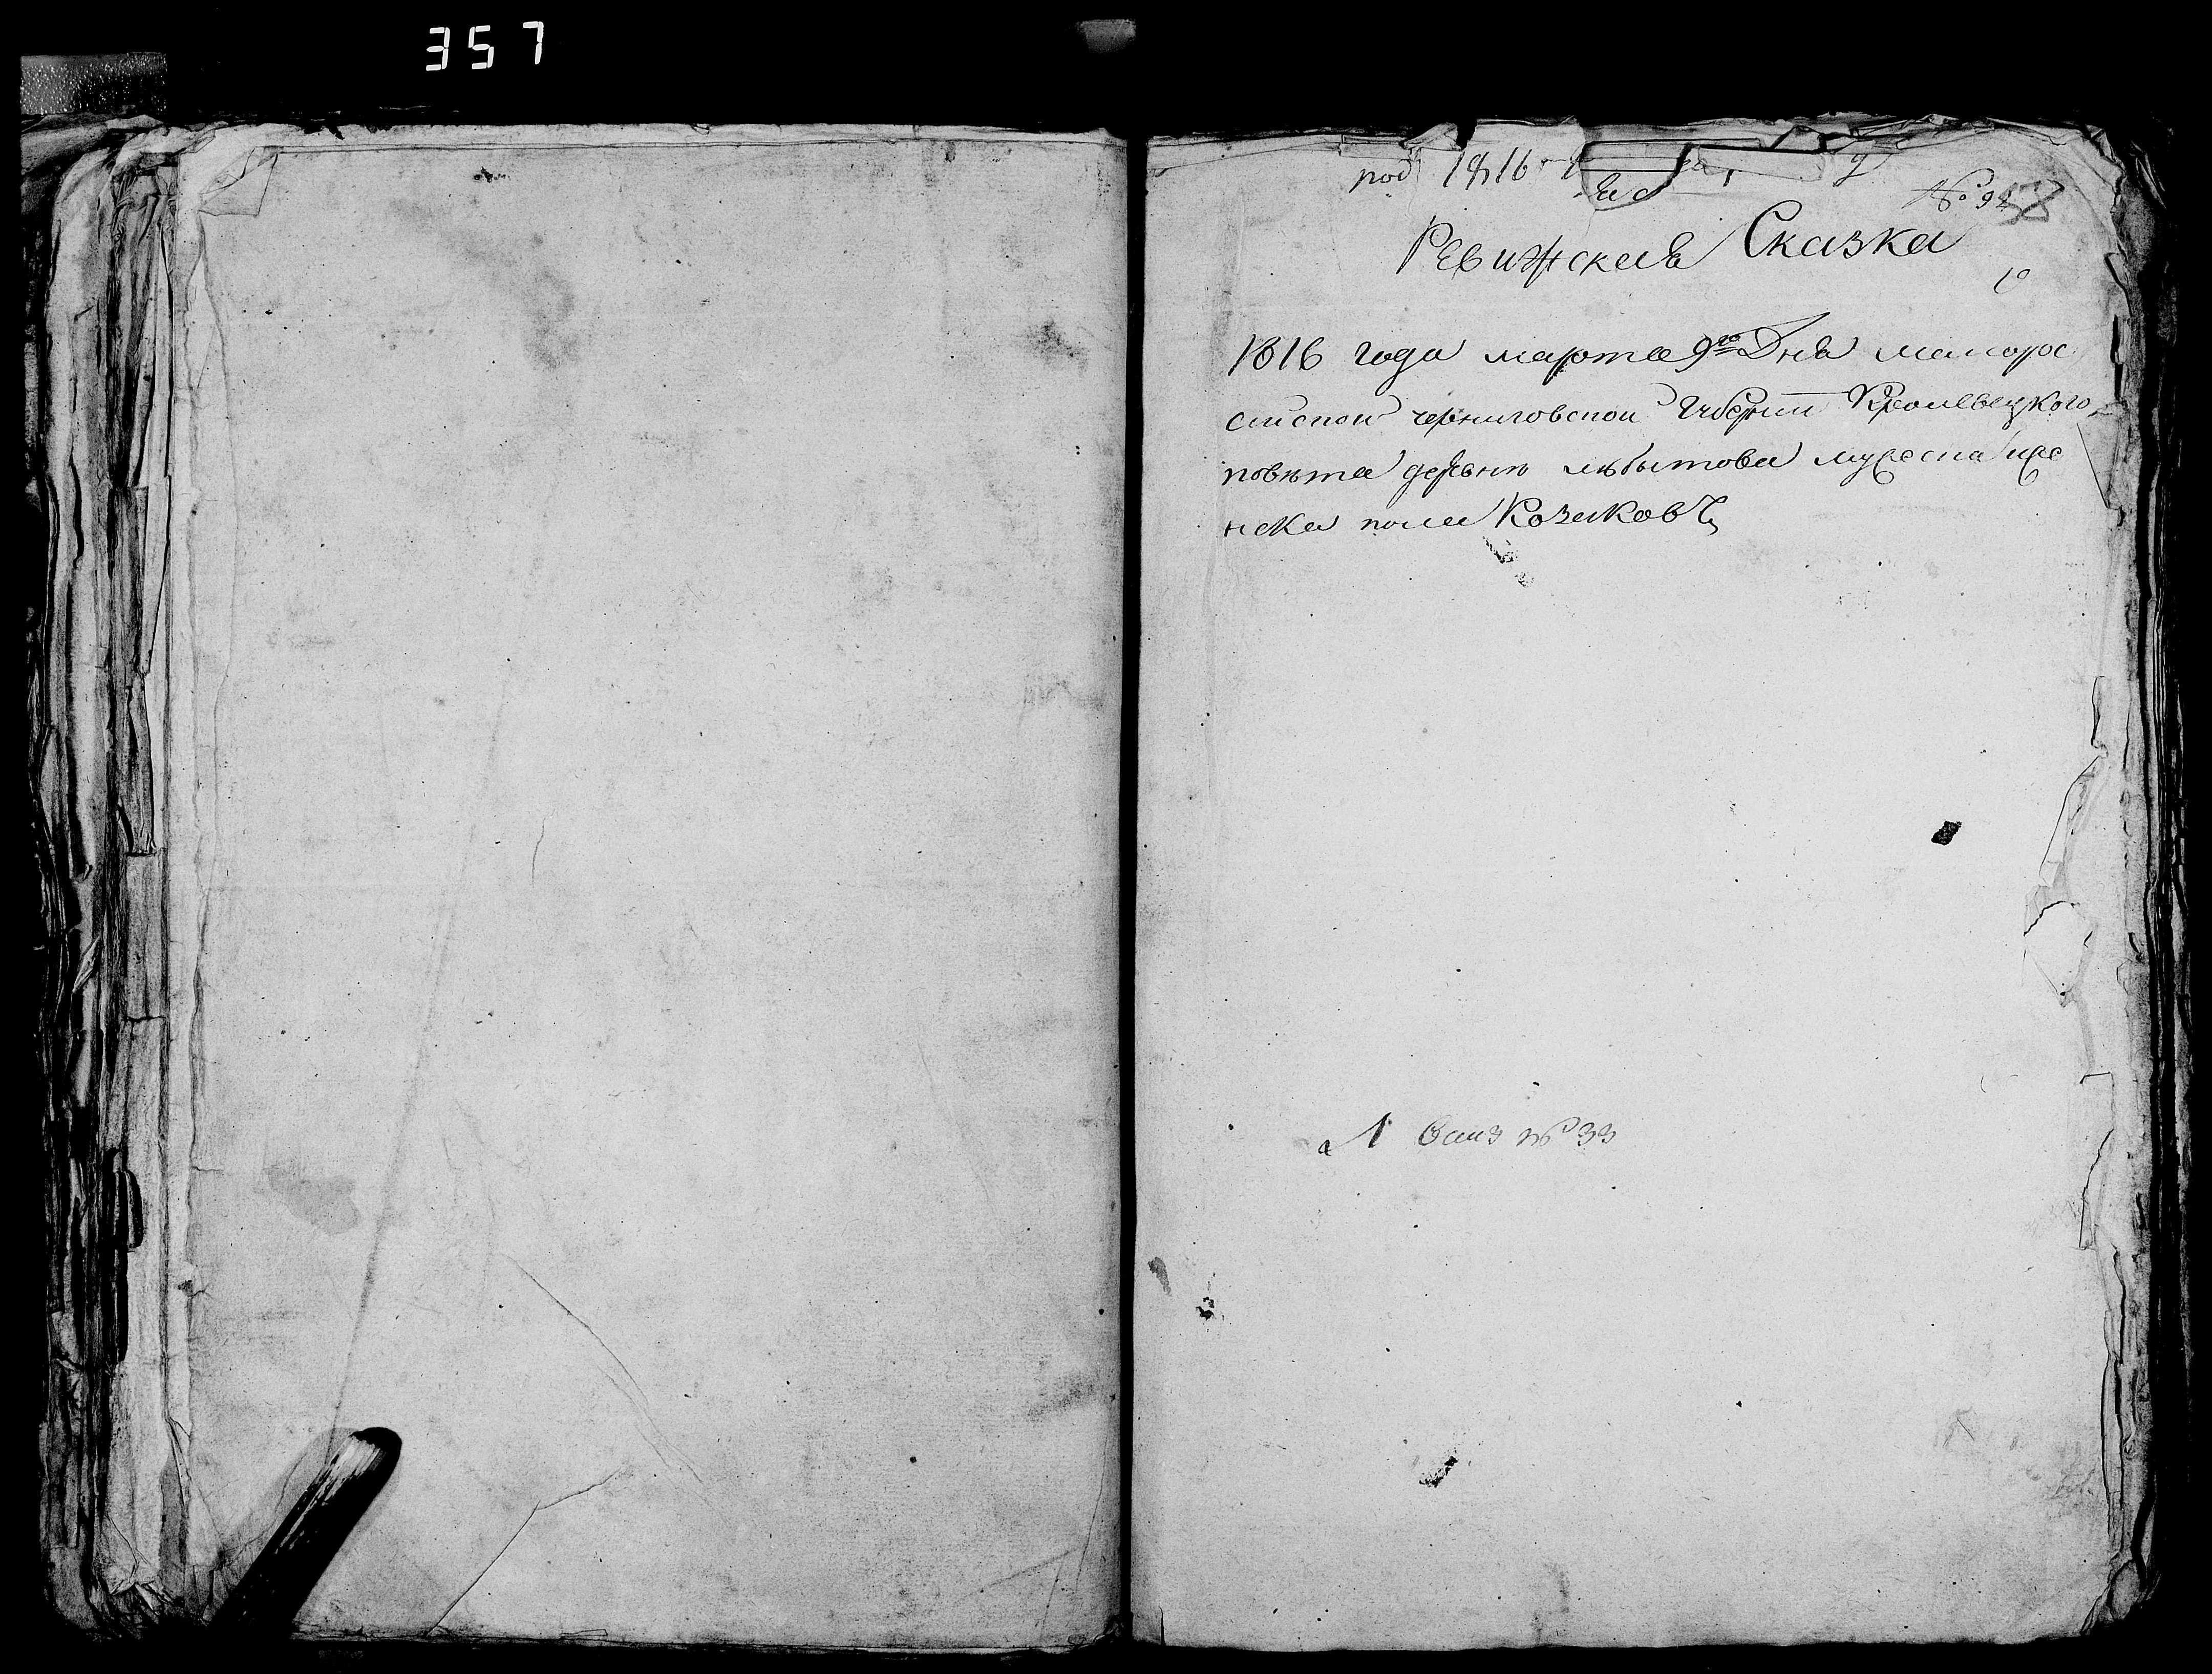 357
под 1816
№ 92 58
Ревижская Сказка
1816 года марта 9го Дня малорос
сиской черниговской Губернии Кролевецкого
повѣта деревни любытова мужеска и же
нска пола Козаковъ
№ 33